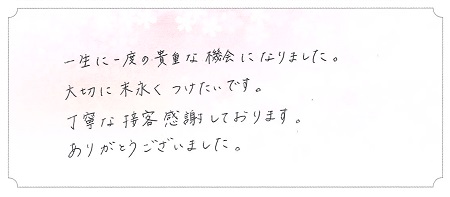 一生に一度の貴重な機会になりました。
大切に末永くつけたいです。
丁寧な接客感謝しております。
ありがとうございました。